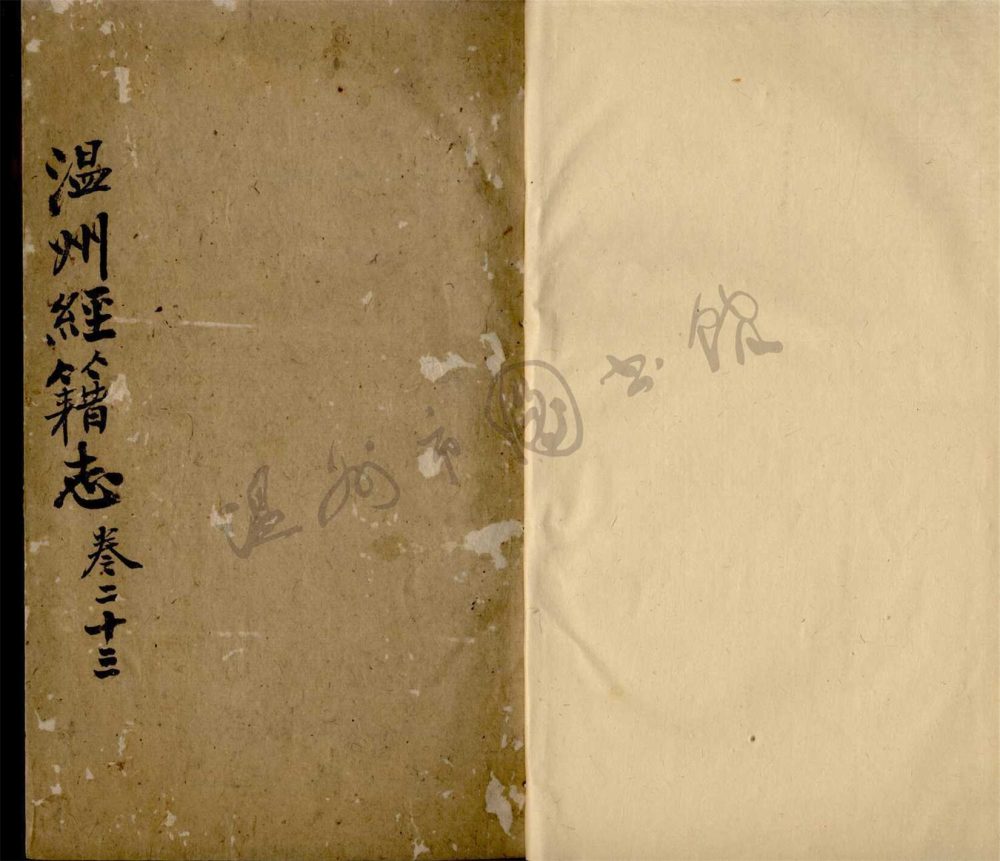 温州經籍志
卷二十三
温州市圖书馆